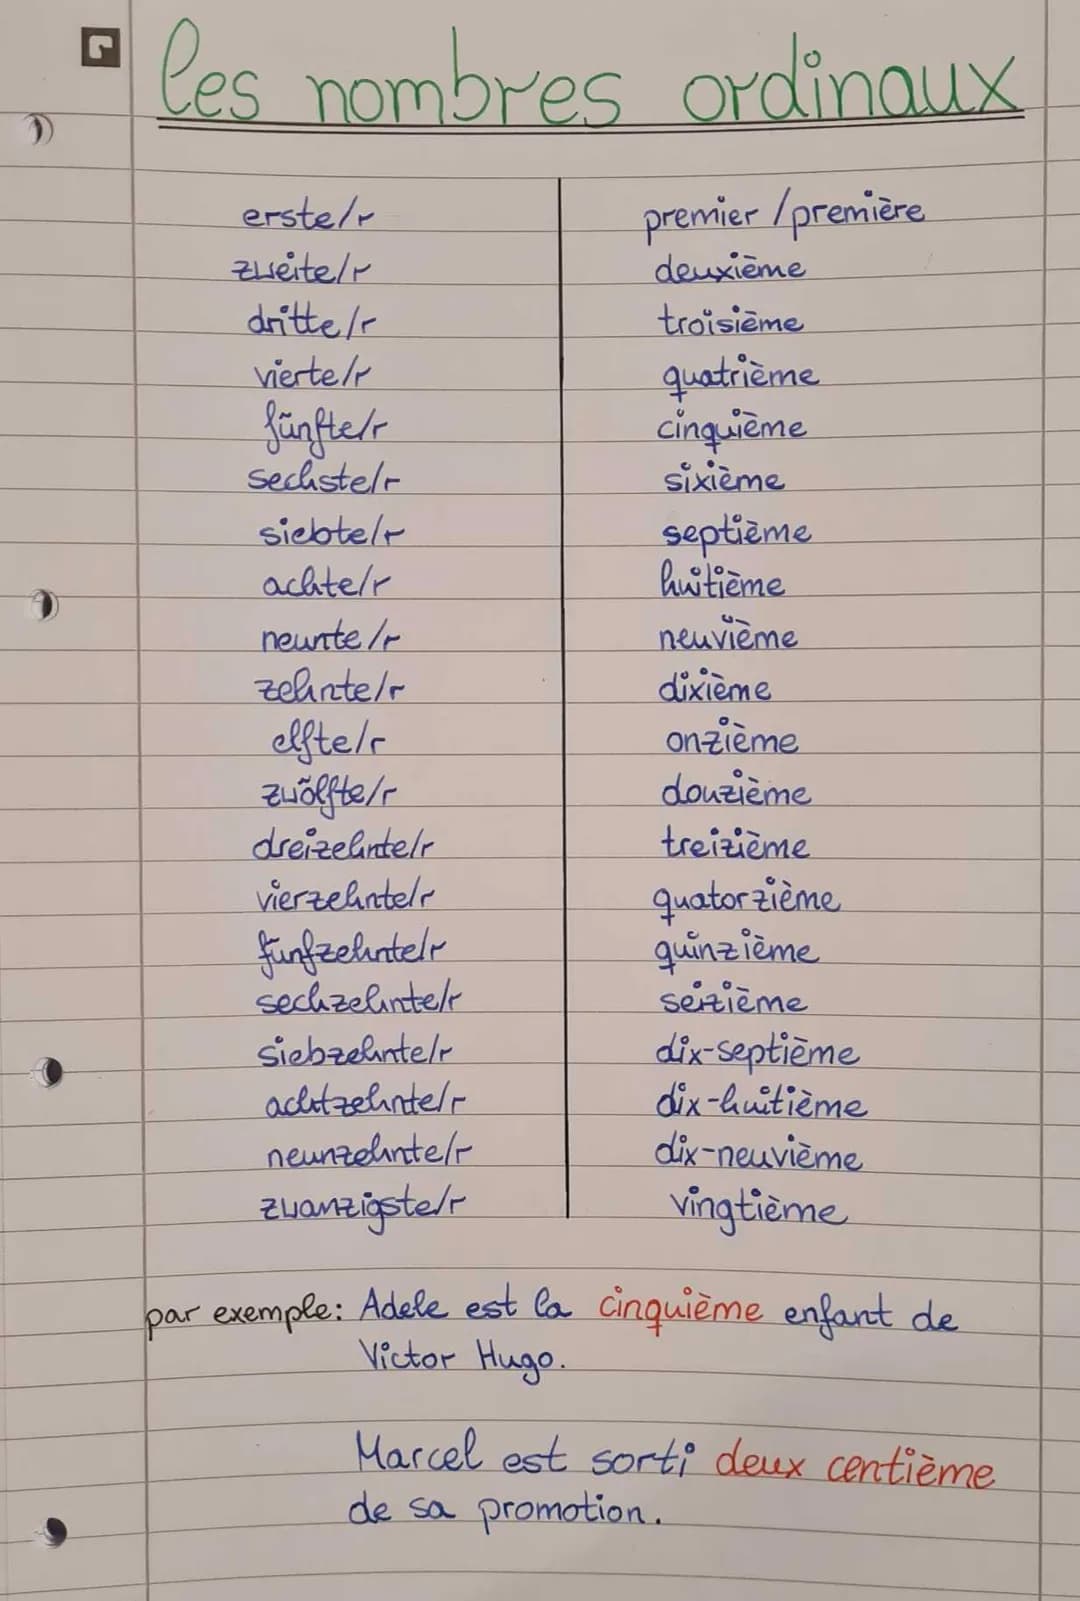 les nombres ordinaux
erste/r premier/première
zweite/r deuxième
dritte/r troisième
vierte/r quatrième
fünfte/r cinquième
sechste/r sixième
siebte/r septième
achte/r huitième
neunte/r neuvième
zehnte/r dixième
elfte/r onzième
zwölfte/r douzième
dreizehnte/r treizième
vierzehnte/r quatorzième
fünfzehnte/r quinzième
sechzehnte/r seizième
siebzehnte/r dix-septième
achtzehnte/r dix-huitième
neunzehnte/r dix-neuvième
zwanzigste/r vingtième
par exemple: Adele est la cinquième enfant de
Victor Hugo.
Marcel est sorti deux centième
de sa promotion.